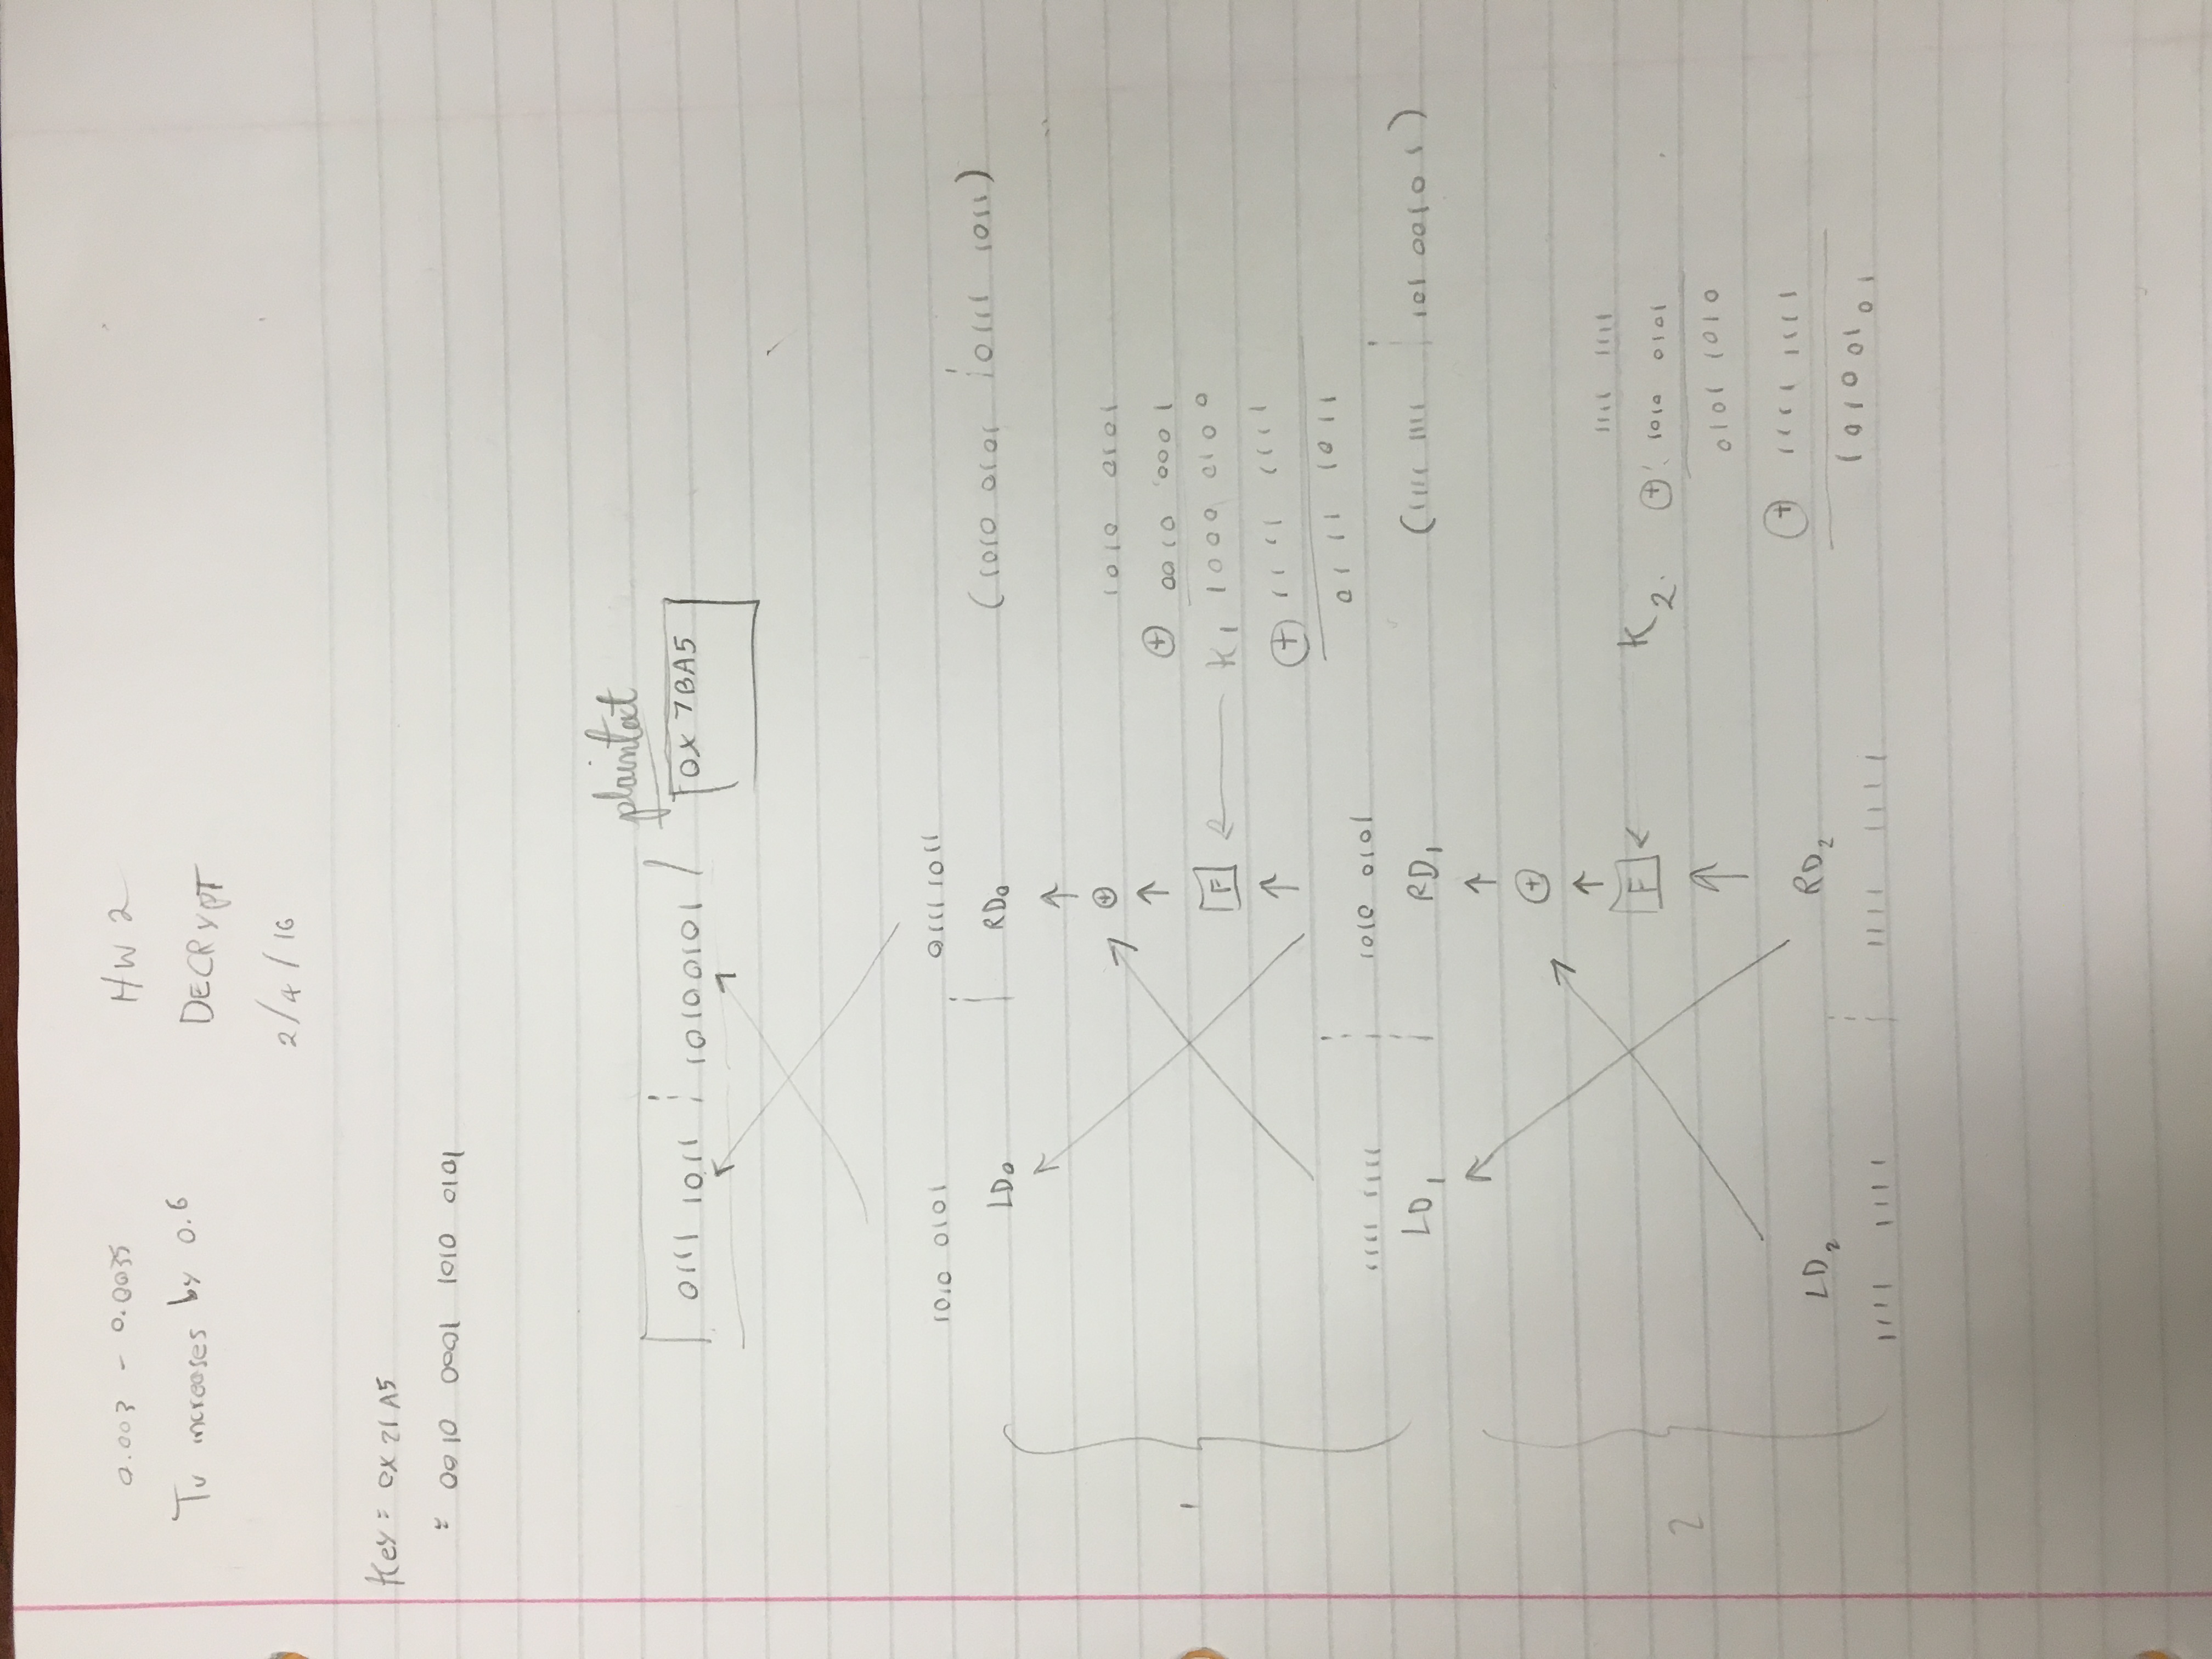 0.003 - 0.0035
HW 2
Tv increases by 0.6
DECRYPT
2/4/16
Key = 0x21A5
= 0010 0001 1010 0101
plaintext
0111 1011 10100101
0x7BA5
1010 0101 01111011
LD0 RD0 (1010 0101 0111 1011)
⊕ 1010 0101
⊕ 0010 0001
F ← K1 1000 0100
⊕ 1111 1111
0111 1011
1111 1111 1010 0101
LD1 RD1 (1111 1111 101 00101)
1
⊕
1111 1111
F ← K2. ⊕ 1010 0101
0101 1010
2
⊕ 1111 1111
LD2 RD2
10100101
1111 1111 1111 1111